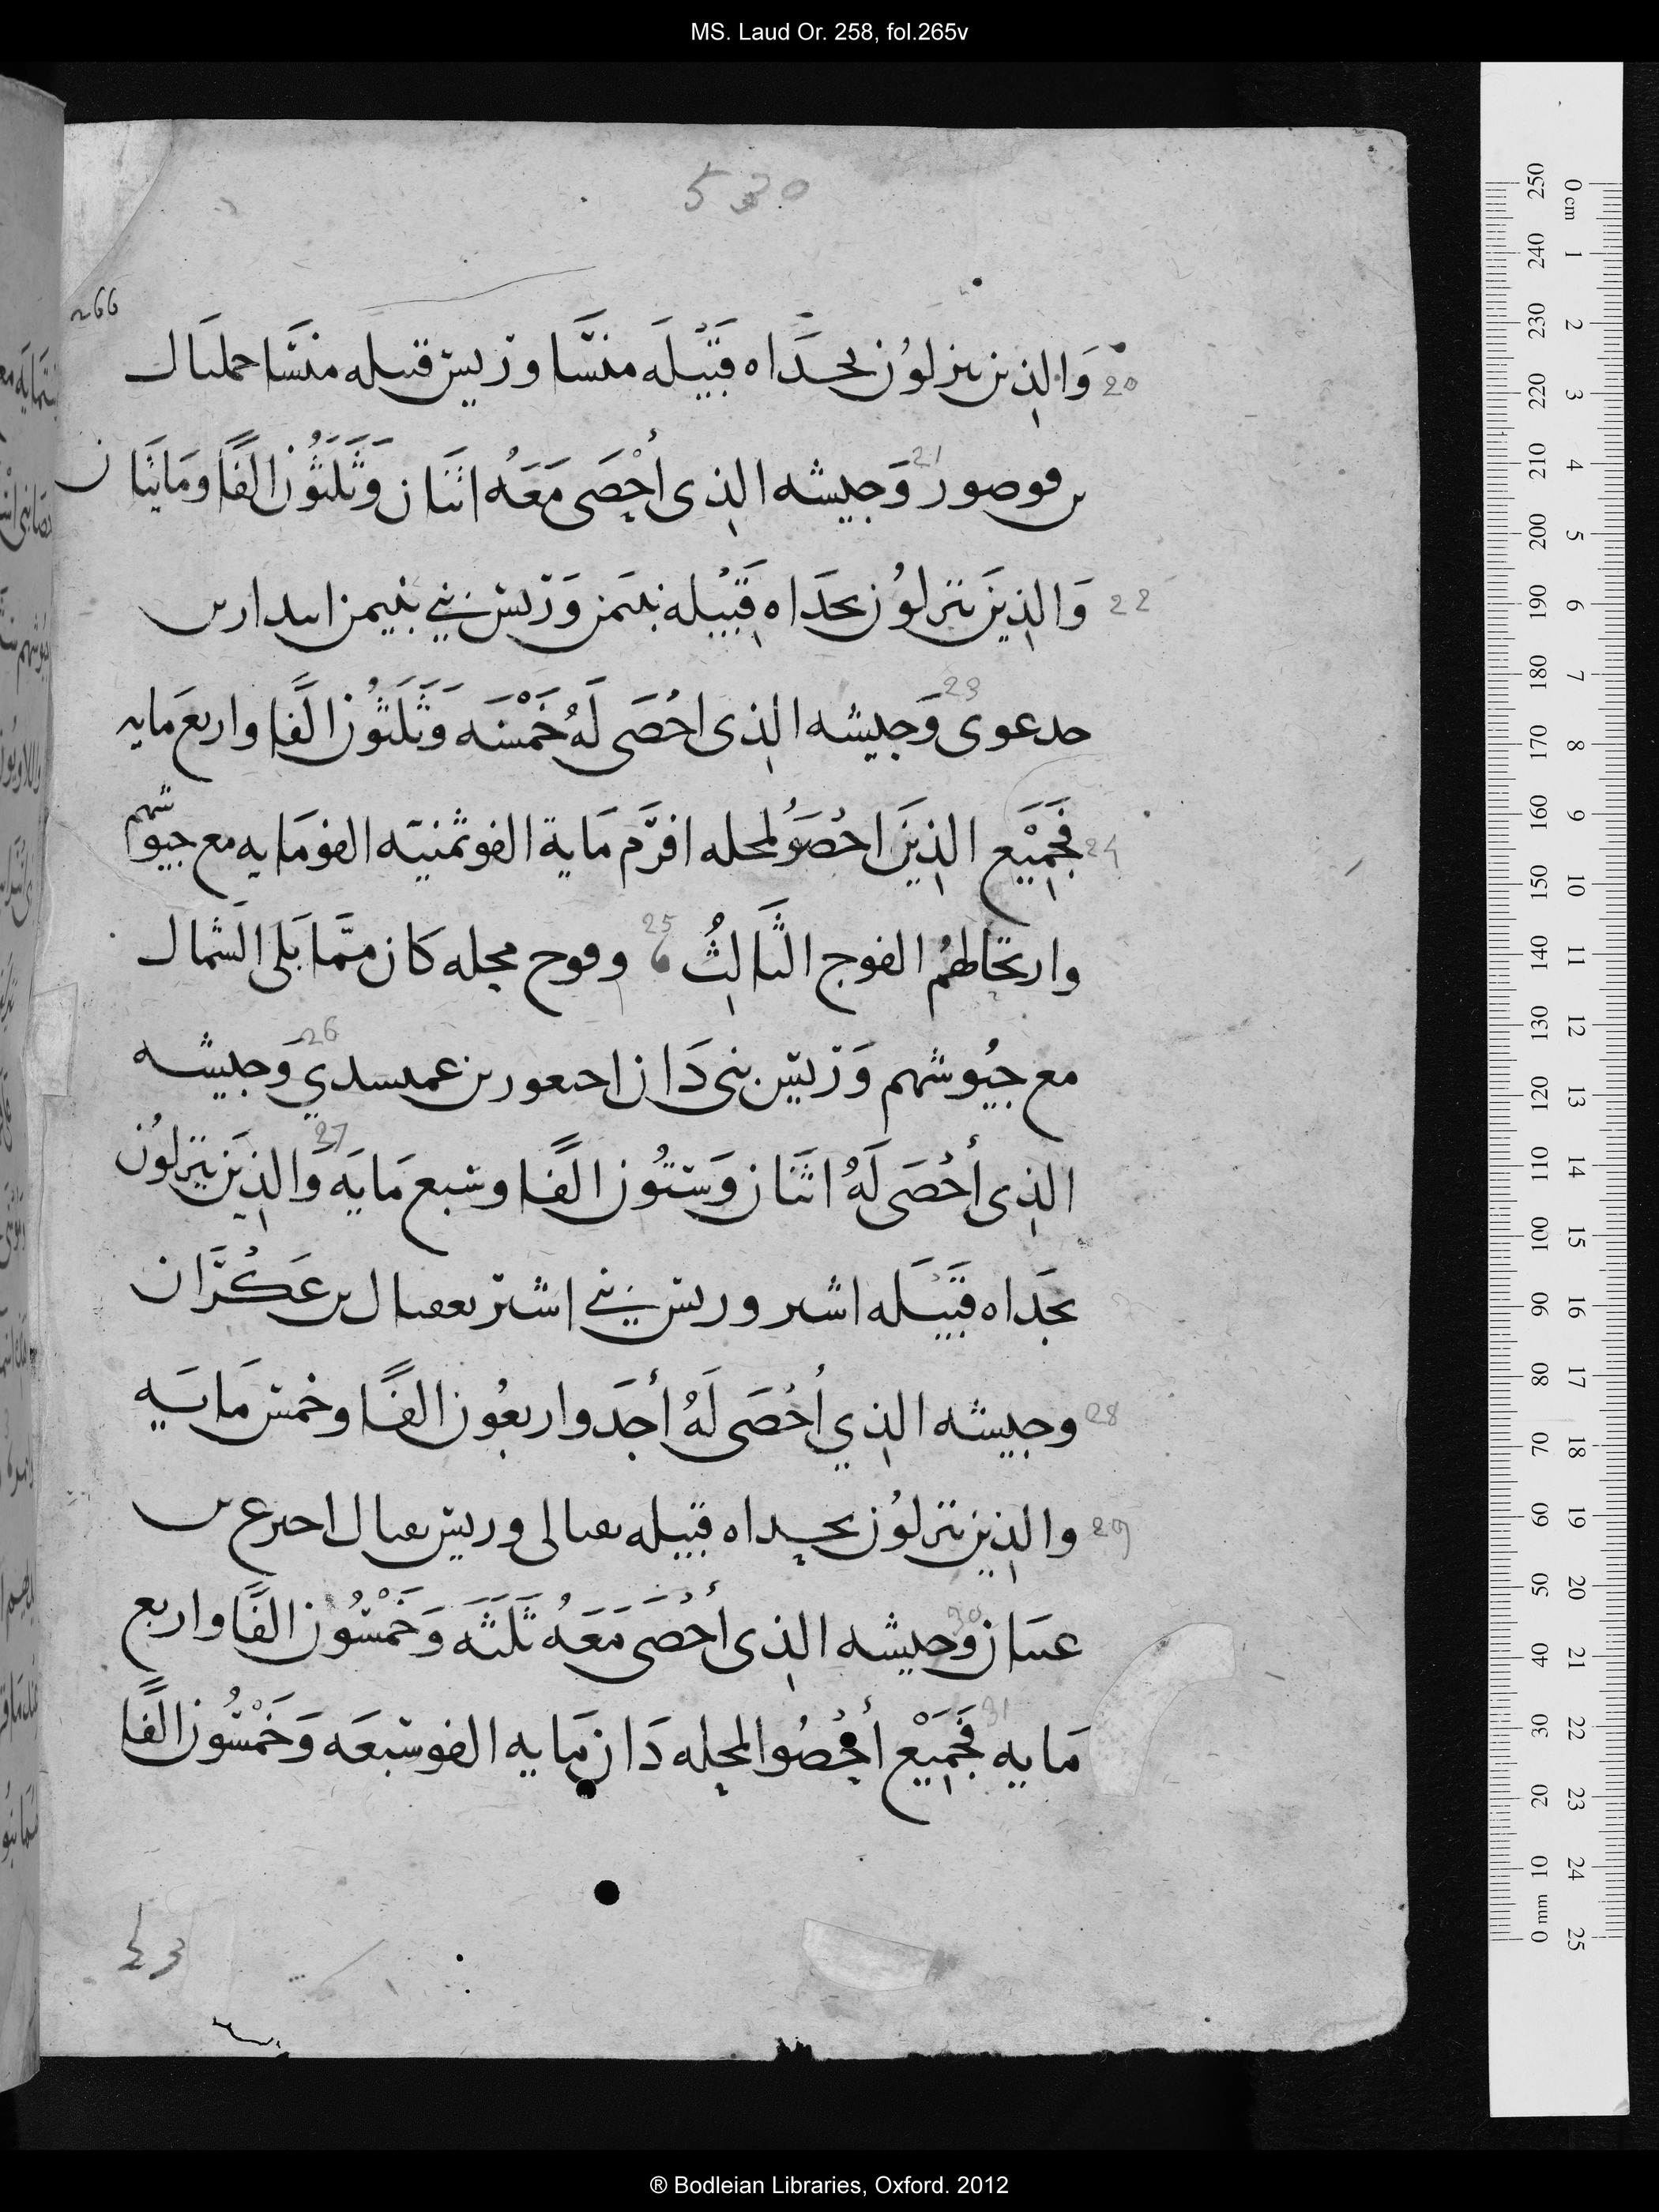 MS. Laud Or. 258, fol.265v
530
266
20 وَالذِين ينزلوُن بحدَاه قَبَيْلَه منسَّا وريس قبيله منسَّا حمليال
بن فوصور 21 وَجيشه الذِى أُحْصَى مَعَهُ اثنَان وَثَلَثوُن الفًا ومَايتَان
22 وَالذِينَ ينزلوُن بحدَاه قَبيْله بنيَمن وَريس بني بنيمن ابيدان بن
جدعوى 23 وَجيشه الذِى احُصَى لَهُ خَمْسَه وَثَلَثوُن الَفًا واربع مايه
24 فجَمِيْع الذِينَ احُصَوُ لمحله افرَّم مَاية الفو ثمنيَه الفومَايه مع جيوُشهم
وارتحَالهُم الفوج الثَالِثُ 25 وفوج محله كان ممَّا يَلى الشمال
مع جيُوشهم وَريسّ بنى دَان احيعور بن عميسدي 26 وَجيشه
الذِى أُحْصَى لَهُ اثنَان وَستوُن الَفًا وسبع مَايَه 27 وَالذِينَ ينزلوُن
بحَداه قَبَيْلَه اشير وريس بني اشير بععيال بن عَكُرَّان
28 وجيشه الذِي أُحْصَى لَهُ أحَد واربعُون الفًا وخمس مَايَه
29 والذِين ينزلوُن بحِداه قبيله نفتالى وريس نفتال احيرع بن
عينان 30 وجيشه الذِى أُحْصَى مَعَهُ ثَلَثَه وَخَمْسُون الفًا واربع
مَايه 31 فجَمِيْع أُحْصُوا لمحِله دَان مَايه الفو سبعَه وَخَمْسُون الفًا
53
0 mm 10 20 30 40 50 60 70 80 90 100 110 120 130 140 150 160 170 180 190 200 210 220 230 240 250
0 cm 1 2 3 4 5 6 7 8 9 10 11 12 13 14 15 16 17 18 19 20 21 22 23 24 25
® Bodleian Libraries, Oxford. 2012